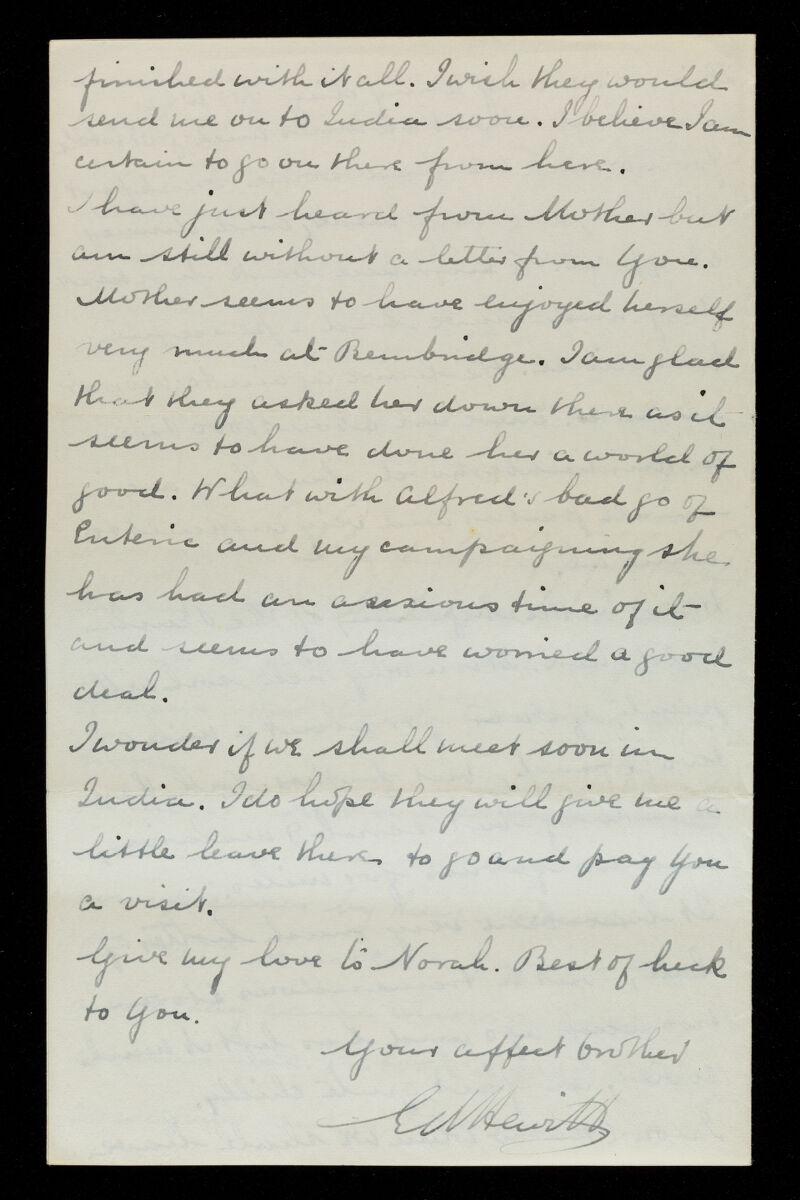 finished with it all. I wish they would
send me on to India soon. I believe I am
certain to go on there from here.
I have just heard from Mother but
am still without a letter from you.
Mother seems to have enjoyed herself
very much at Bembridge. I am glad
that they asked her down there as it
seems to have done her a world of
good. What with Alfred's bad go of
Enteric and my campaigning she
has had an anxious time of it
and seems to have worried a good
deal.
I wonder if we shall meet soon in
India. I do hope they will give me a
little leave there to go and pay you
a visit.
Give my love to Norah. Best of luck
to you.
Your affect brother
Ed Hewitt